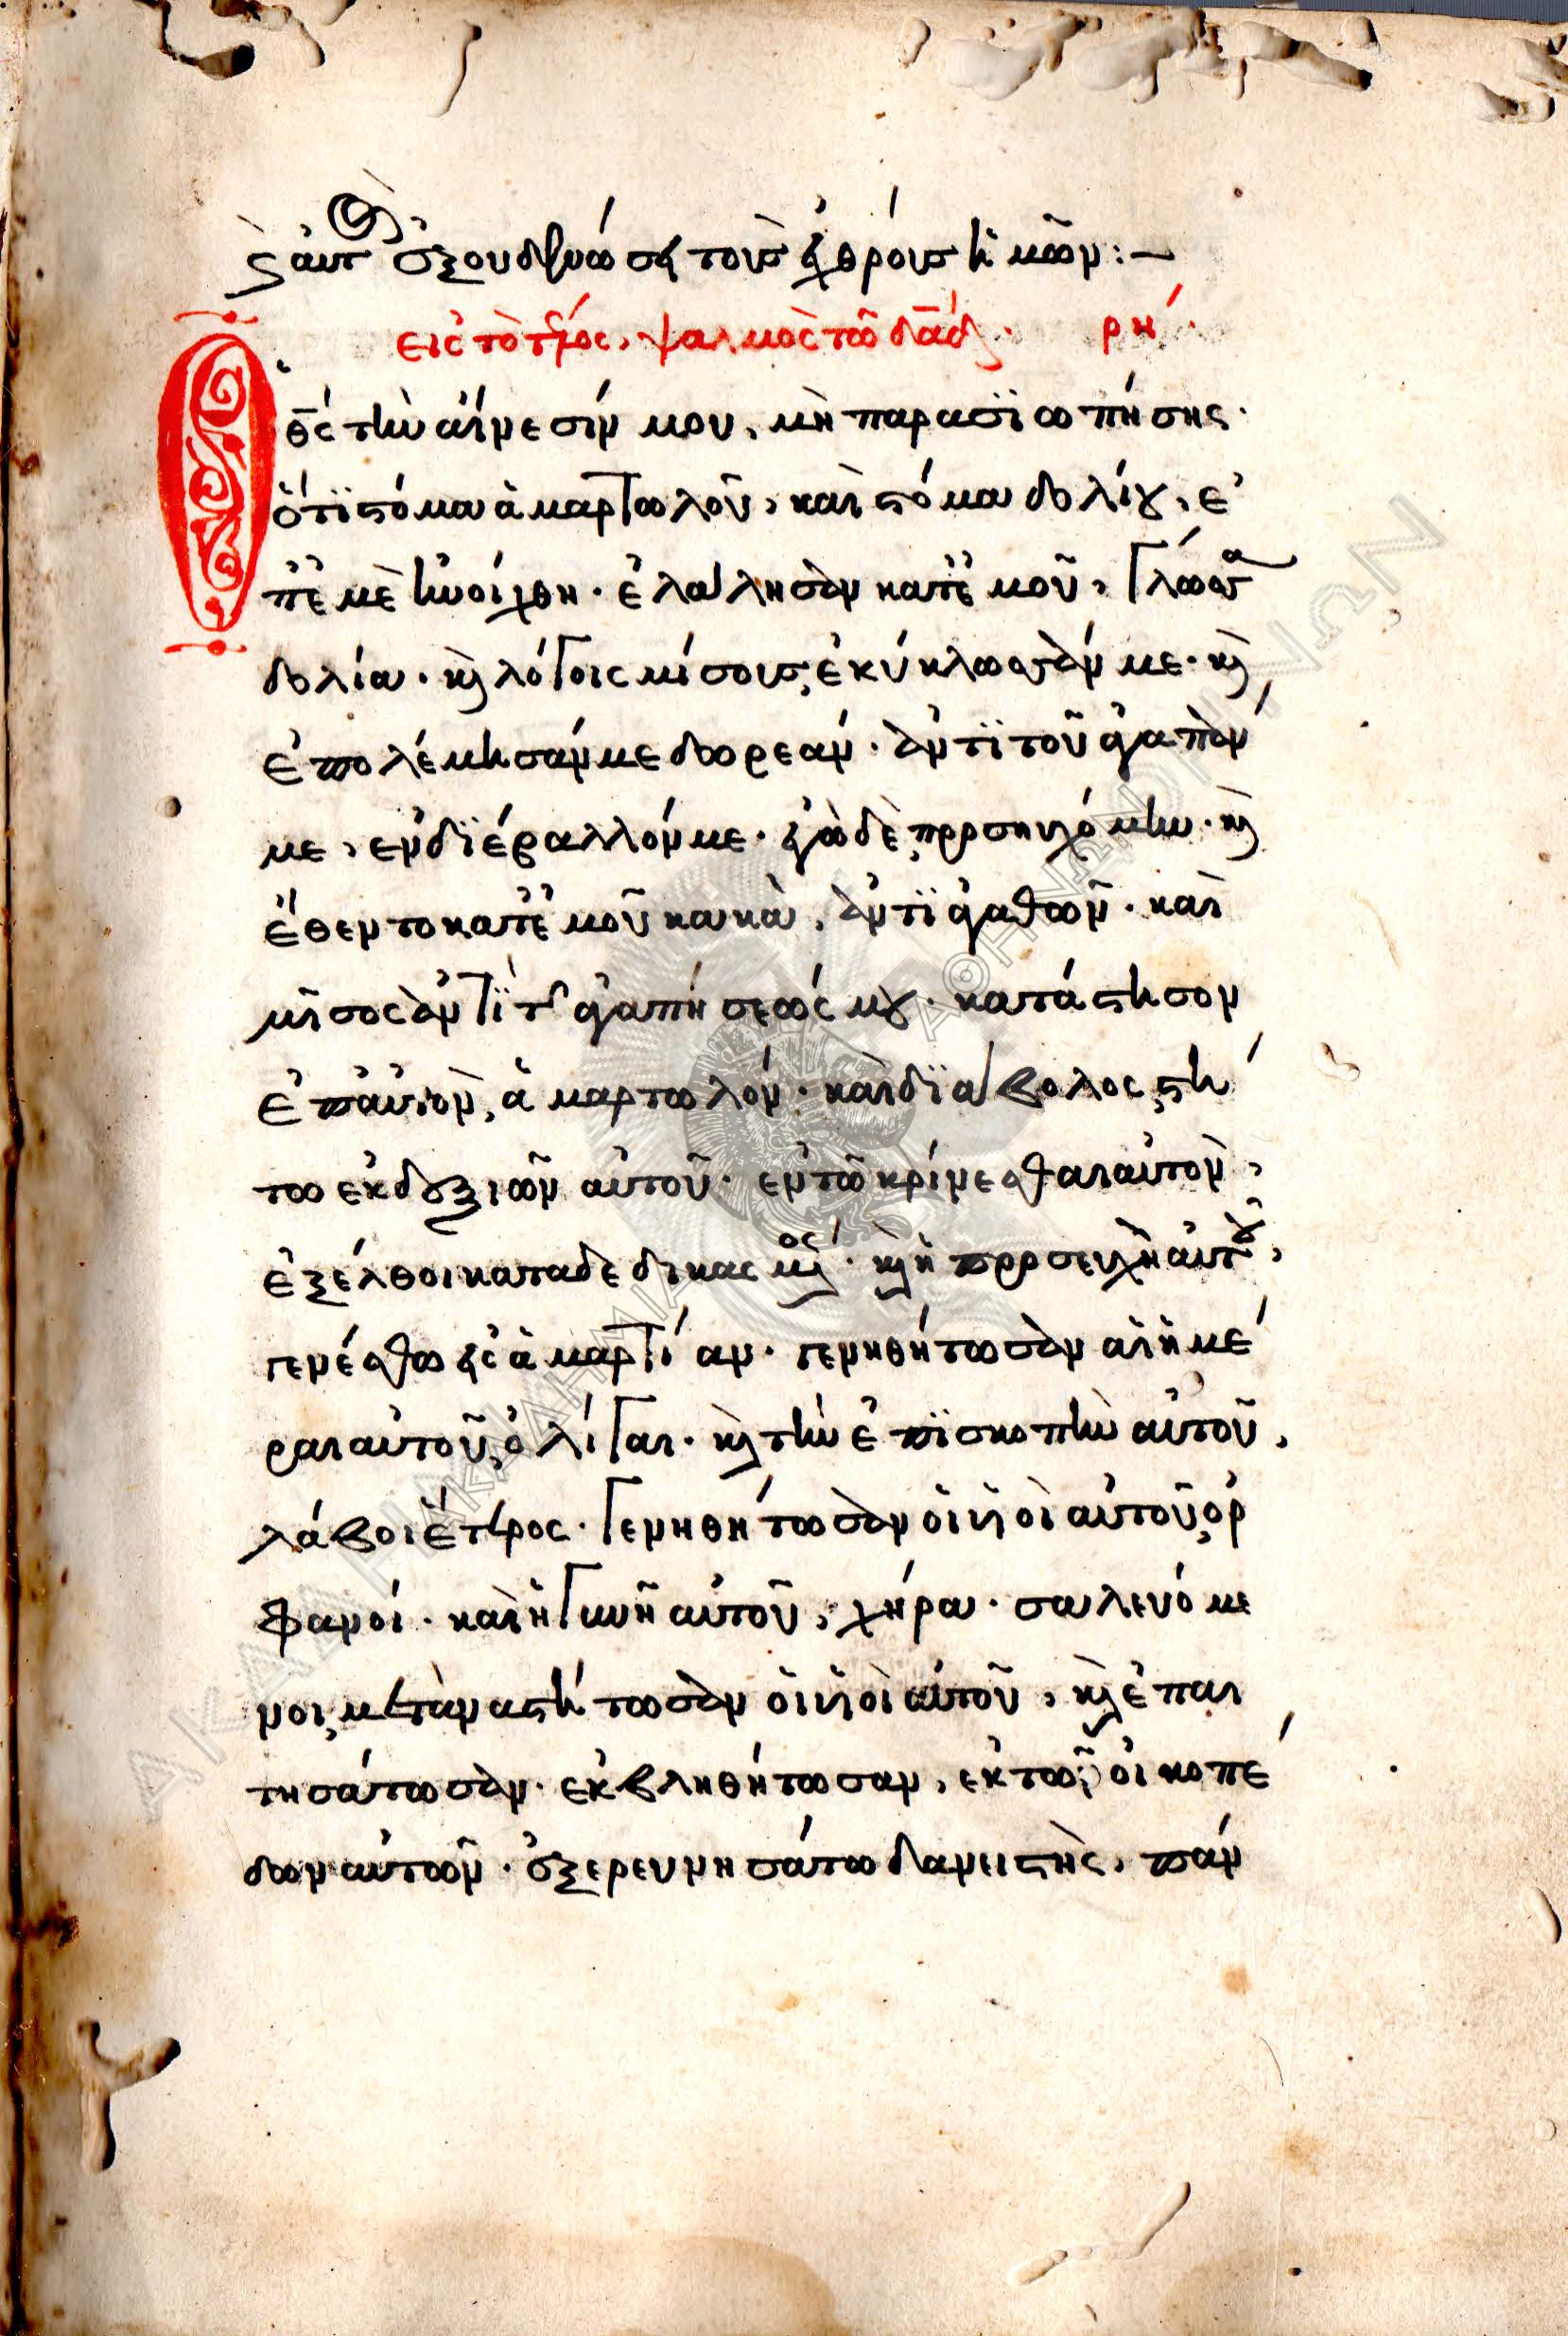 ϗ αὐτὸς ἐξουδενώσει τοὺς ἐχθροὺς ἡμῶν:—
εἰς τὸ τέλος, ψαλμὸς τῶ δᾱδ. ρη΄.
Ὁ θ̄ς τὴν αἴνεσίν μου, μὴ παρασϊωπήσης·
ὅτϊ στόμα ἁμαρτωλοῦ, καὶ στόμα δολίου, ἐ
π᾽ ἐμὲ ἠνοίχθη· ἐλάλησαν κατ᾽ ἐμοῦ, γλώσσα
δολία· ϗ λόγοις μίσους, ἐκύκλωσάν με· ϗ
ἐπολέμησάν με δωρεάν· ἀντϊ τοῦ ἀγαπάν
με, ενδϊέβαλλόν με· ἐγὼ δὲ, προσηυχόμην· ϗ
ἔθεντο κατ᾽ ἐμοῦ κακὰ, ἀντϊ ἀγαθῶν· καὶ
μῖσος ἀντϊ τῆς ἀγαπήσεώς μου· κατάστησον
ἐπ᾽ αὐτὸν, ἁμαρτωλόν· καὶ δϊάβολος, στή
τω εκ δεξιῶν αὐτοῦ· εν τῶ κρίνεσθαι αὐτὸν,
ἐξέλθοι καταδεδικασμένος· ϗ ἡ προσευχὴ αὐτοῦ,
γενέσθω εἰς ἁμαρτίαν· γενηθήτωσαν αἱ ἡμέ
ραι αὐτοῦ, ὀλίγαι· ϗ τὴν ἐπϊσκοπὴν αὐτοῦ,
λάβοι ἕτερος· γενηθήτωσαν οἱ ὑιοὶ αὐτοῦ, ὀρ
φανοί· καὶ ἡ γυνὴ αὐτοῦ, χήρα· σαλευόμε
νοι, μεταναστήτωσαν οἱ ὑιοὶ αὐτοῦ, ϗ ἐπαι
τησάτωσαν· ἐκβληθήτωσαν, εκ τῶν οἰκοπέ
δων αὐτῶν· ἐξερευνησάτω δανειστὴς, πάν